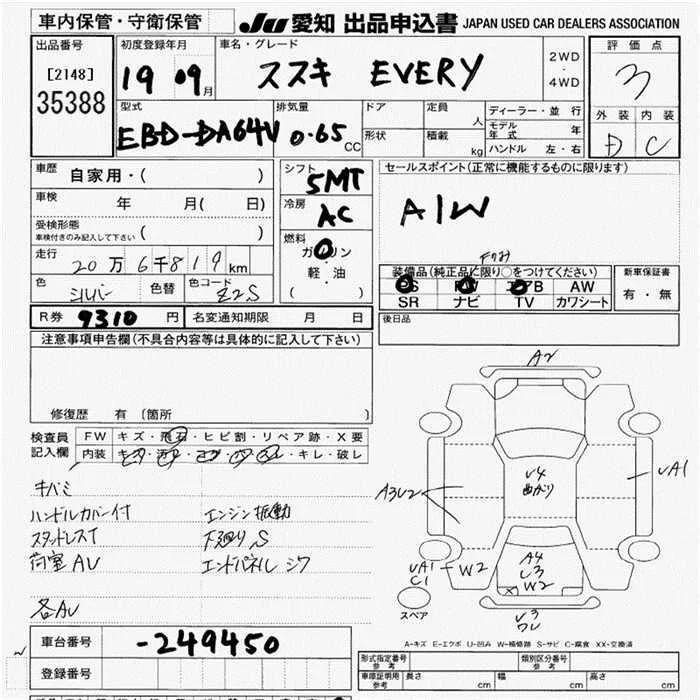 車内保管・守衛保管
JU 愛知 出品申込書 JAPAN USED CAR DEALERS ASSOCIATION
出品番号
[2148]
35388
初度登録年月
19 09月
車名・グレード
スズキ EVERY
2WD
・
4WD
評価点
3
外装 内装
D C
型式
EBD-DA64V
排気量
0.65 CC
ドア
形状
定員
人
積載
kg
ディーラー・並行
モデル年式 年
ハンドル 左・右
車歴
自家用・( )
車検
年 月( 日)
受検形態
車検付きのみ記入して下さい ( )
走行
20万6千819km
色
シルバー
色替
色コード
Z2S
シフト
5MT
冷房
AC
燃料
ガソリン
・
軽・油
( )
セールスポイント(正常に機能するものに限ります)
A/W
装備品(純正品に限り○をつけてください)
PS PW エアB AW
SR ナビ TV カワシート
新車保証書
有・無
R券 9310 円
名変通知期限 月 日
後日品
注意事項申告欄(不具合内容等は具体的に記入して下さい)
修復歴 有 〔箇所 〕
検査員
記入欄
FW キズ・飛石・ヒビ割・リペア跡・X要
内装 キズ・汚れ・コゲ・穴・スレ・キレ・破レ
キバミ
ハンドルカバー付 エンジン振動
スタッドレスT 下廻りS
荷室AU エンドパネルシワ
各AU
A2
U4
曲がり
A3U2
UA1
UA1
C1
W2
A4
U3
W2
スペア
U3
ワレ
A-キズ E-エクボ U-凹み W-補修跡 S-サビ C-腐食 XX-交換済
車台番号 -249450
登録番号
形式指定番号
参考
類別区分番号
参考
車庫証明用
参考
長さ cm 幅 cm 高さ cm